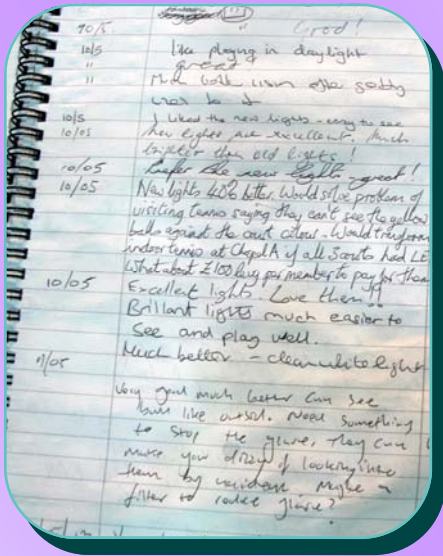 10/5 " Good!
10/5 like playing in daylight
" great
" Much better vision after getting
used to it
10/5 I liked the new lights - easy to see
10/05 New lights are excellent. Much
brighter than old lights!
10/05 Prefer the new lights - great!
10/05 New lights 40% better. Would solve problem of
visiting teams saying they can't see the yellow
balls against the court colour. Would transform
indoor tennis at Chapel A if all 3 courts had LE
What about £100 levy per member to pay for them
10/05 Excellent lights. Love them!!
Brillant lights much easier to
see and play well.
11/05 Much better - clean white light
Very good much better can see
ball like outside. Need something
to stop the glare, they can
make you dizzy if looking into
them by accident. Maybe a
filter to reduce glare?